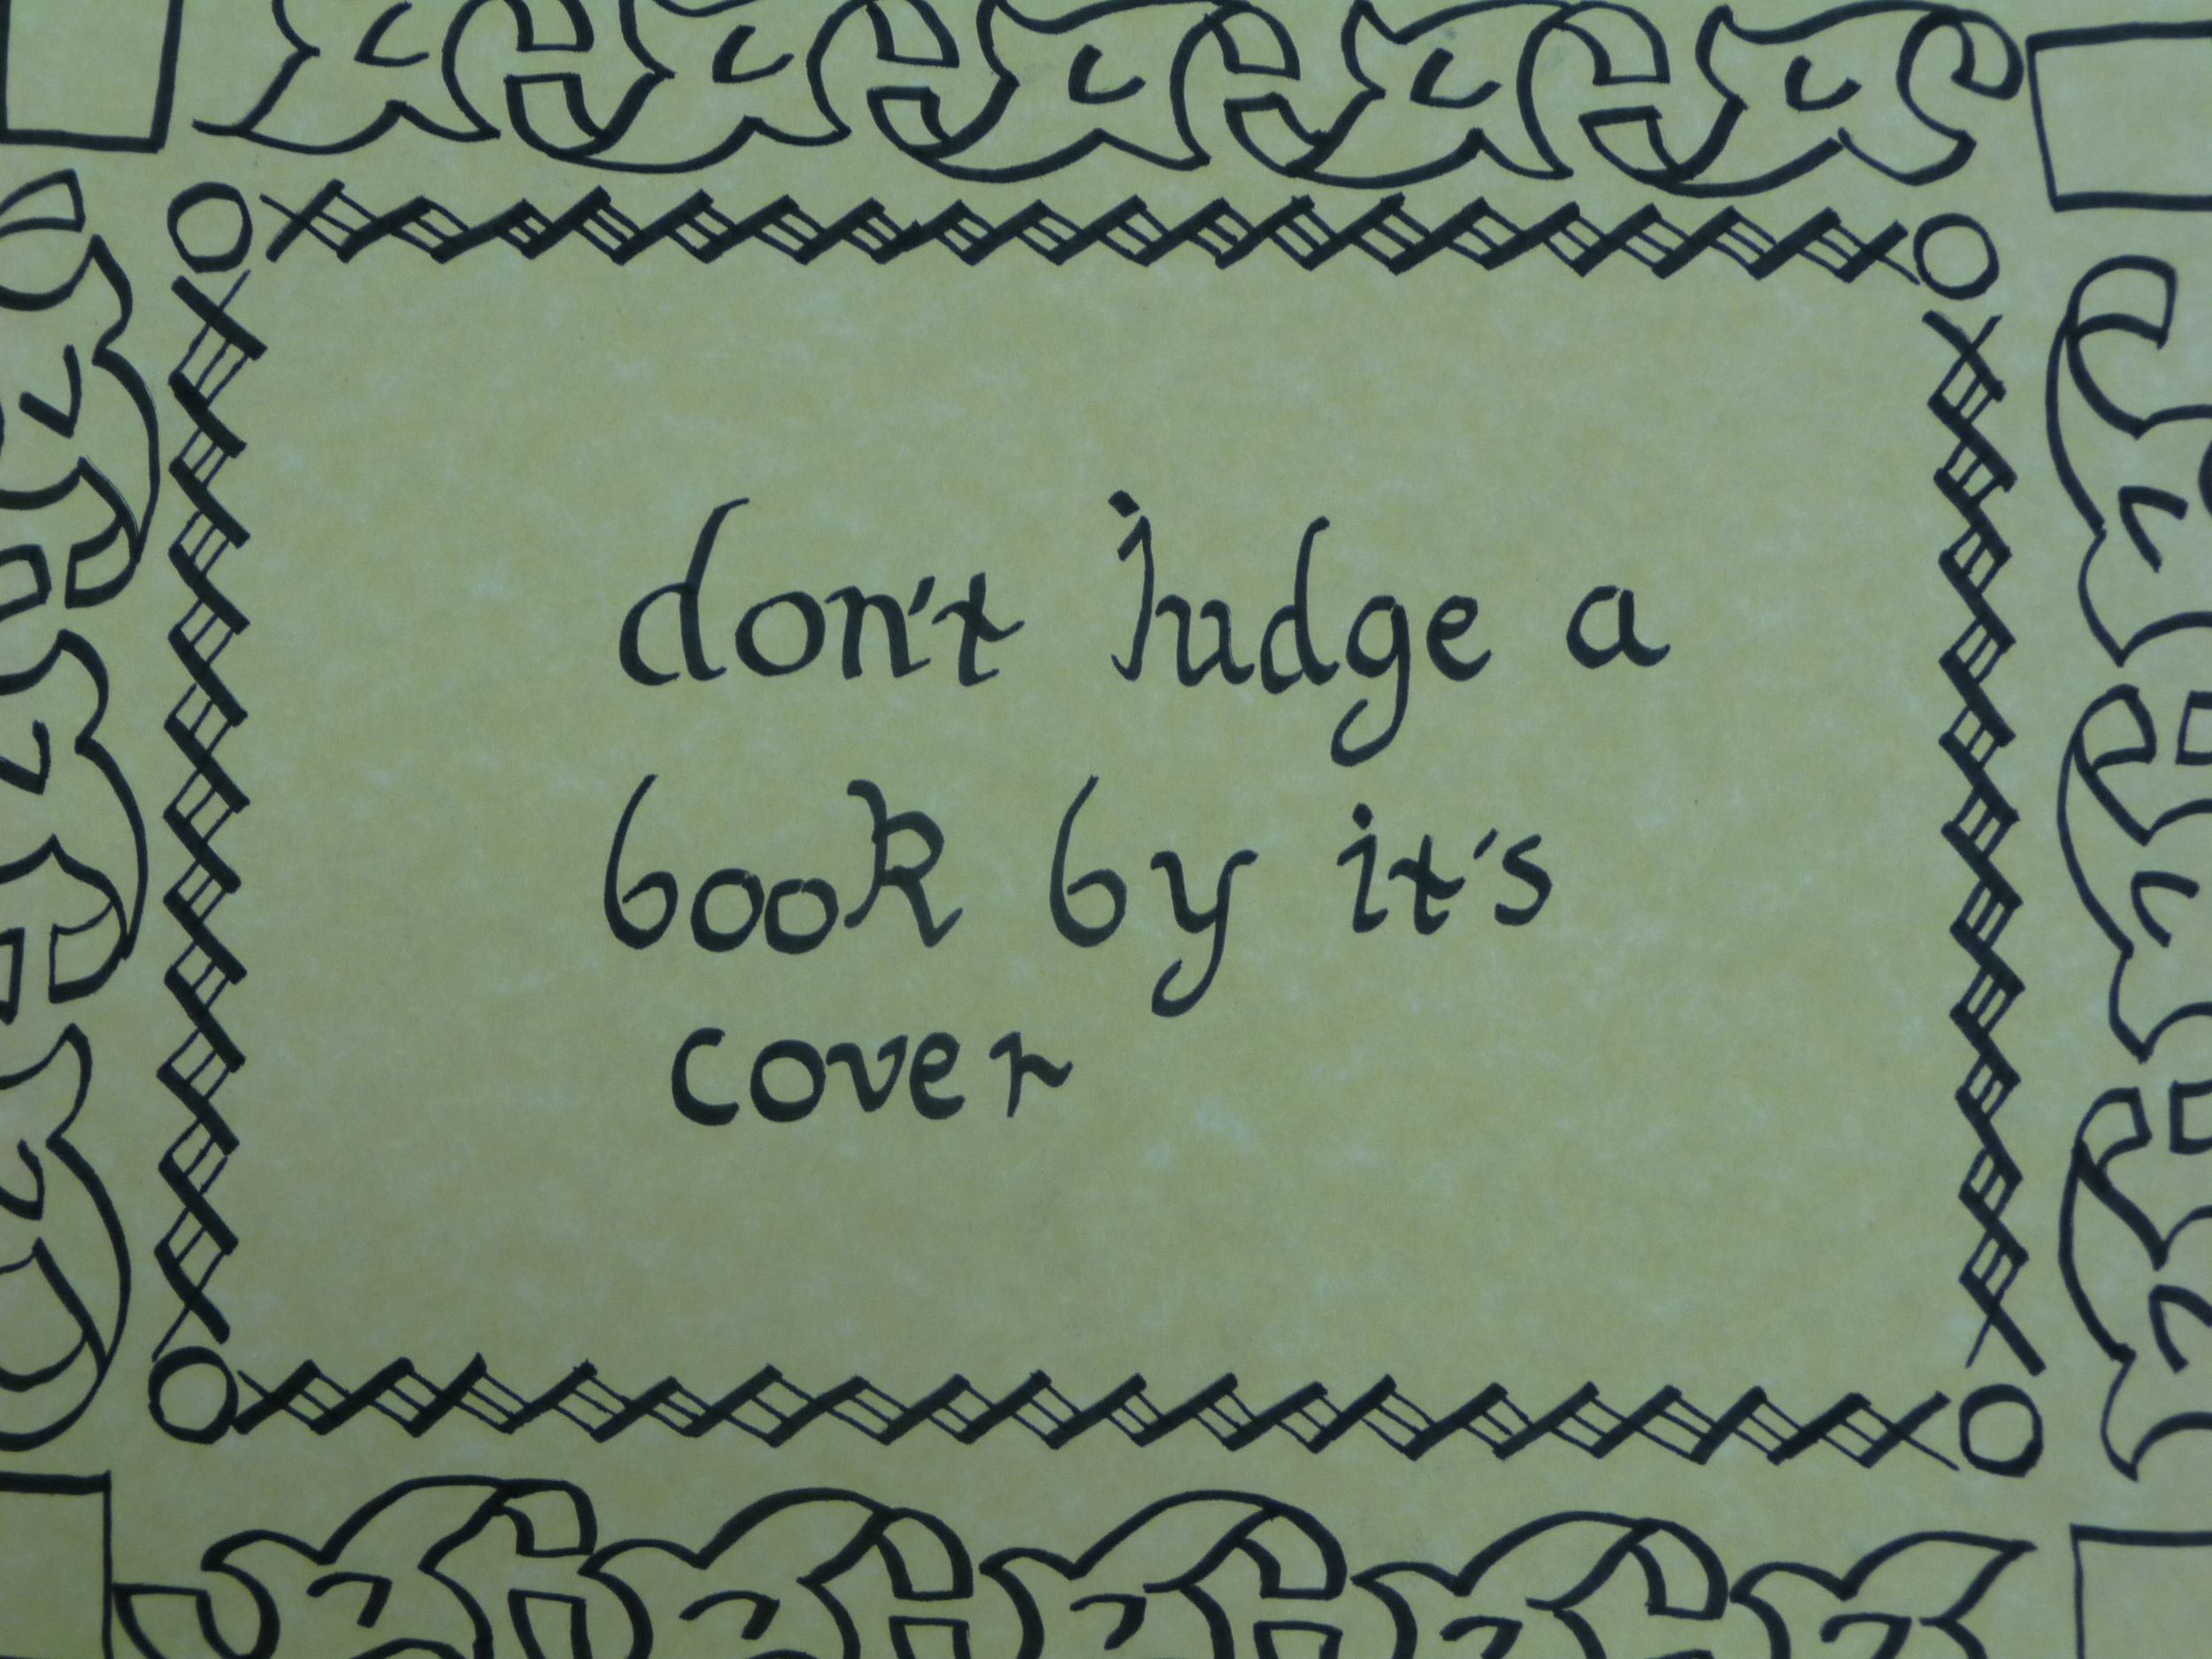 don't judge a
book by it's
cover